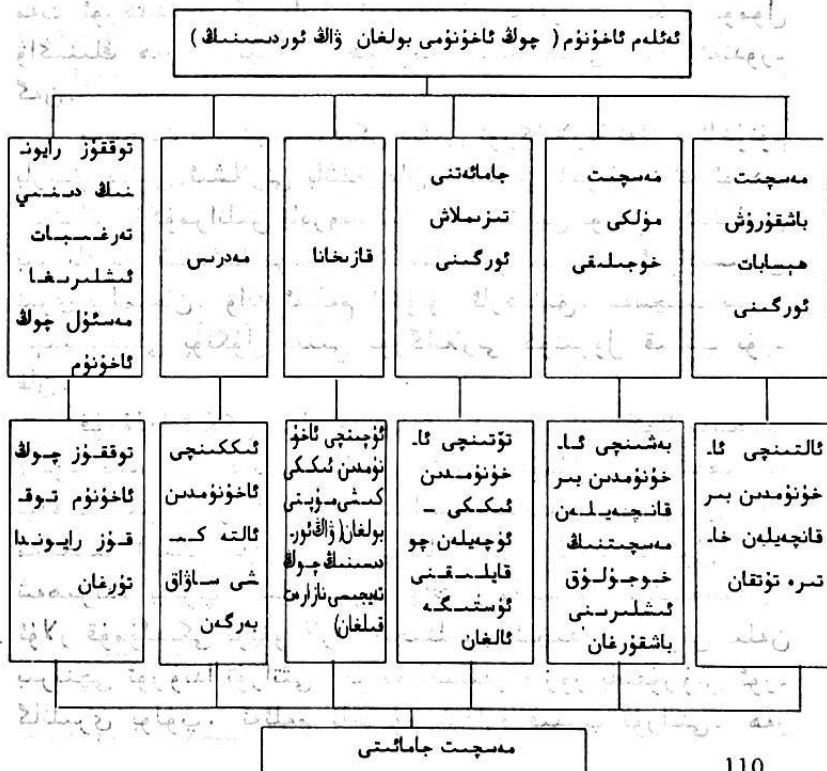 ئەئلەم ئاخۇنۇم ( چوڭ ئاخۇنۇمى بولغان ۋاڭ ئوردىسىنىڭ )
مەسچىت
باشقۇرۇش
ھېسابات
ئورگىنى
مەسچىت
مۈلكى
خوجىلىقى
جامائەتنى
تىزىملاش
ئورگىنى
قازىخانا
مەدرىس
توققۇز رايونـ
نىڭ دىنىي
تەرغىبات
ئىشلىرىغا
مەسئۇل چوڭ
ئاخۇنۇم
ئالتىنچى ئاـ
خۇنۇمدىن بىر
قانچەيلەن خاـ
تىرە تۇتقان
بەشىنچى ئاـ
خۇنۇمدىن بىر
قانچەيلەن
مەسچىتنىڭ
خوجۇلۇق
ئىشلىرىنى
باشقۇرغان
تۆتىنچى ئاـ
خۇنۇمدىن
ئىككى ـ
ئۈچەيلەن چو
قايلىقنى
ئۈستىگە
ئالغان
ئۈچىنچى ئاخۇ
نۇمدىن ئىككى
كىشى مۇپتى
بولغان( ۋاڭ ئورـ
دىسىنىڭ چوڭ
تەيجىسى نازارەت
قىلغان)
ئىككىنچى
ئاخۇنۇمدىن
ئالتە كىـ
شى ساۋاق
بەرگەن
توققۇز چوڭ
ئاخۇنۇم توقـ
قۇز رايوندا
تۇرغان
مەسچىت جامائىتى
110